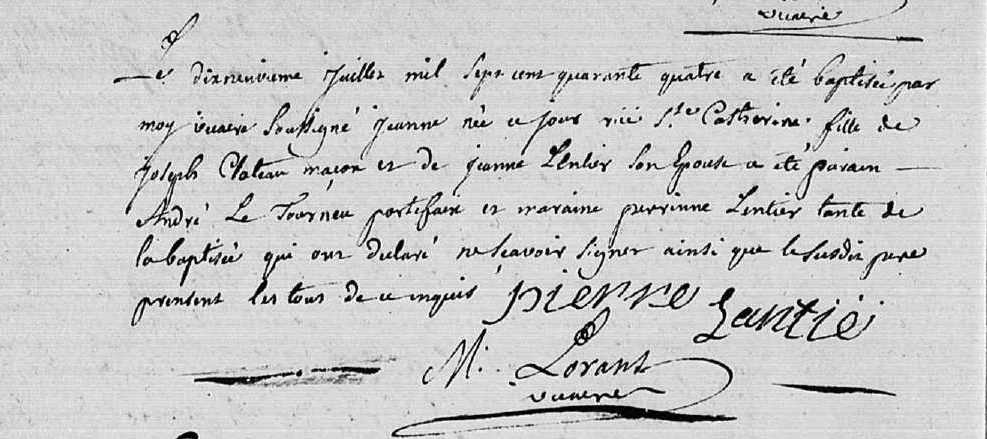 vicaire
Le dixneuvieme Juillet mil sept cent quarante quatre a été baptisée par
moy vicaire soussigné Jeanne née ce jour rüe Ste Catherine. fille de
Joseph Plateau maçon et de jeanne Lentier son Epouse a été parain
André Le Tourneu portefaix et maraine perrinne Lentier tante de
la baptisée qui ont declaré ne scavoir signer ainsi que le susdit pere
present les tous de ce enquis pierre Lantié
M. Lorant
vicaire